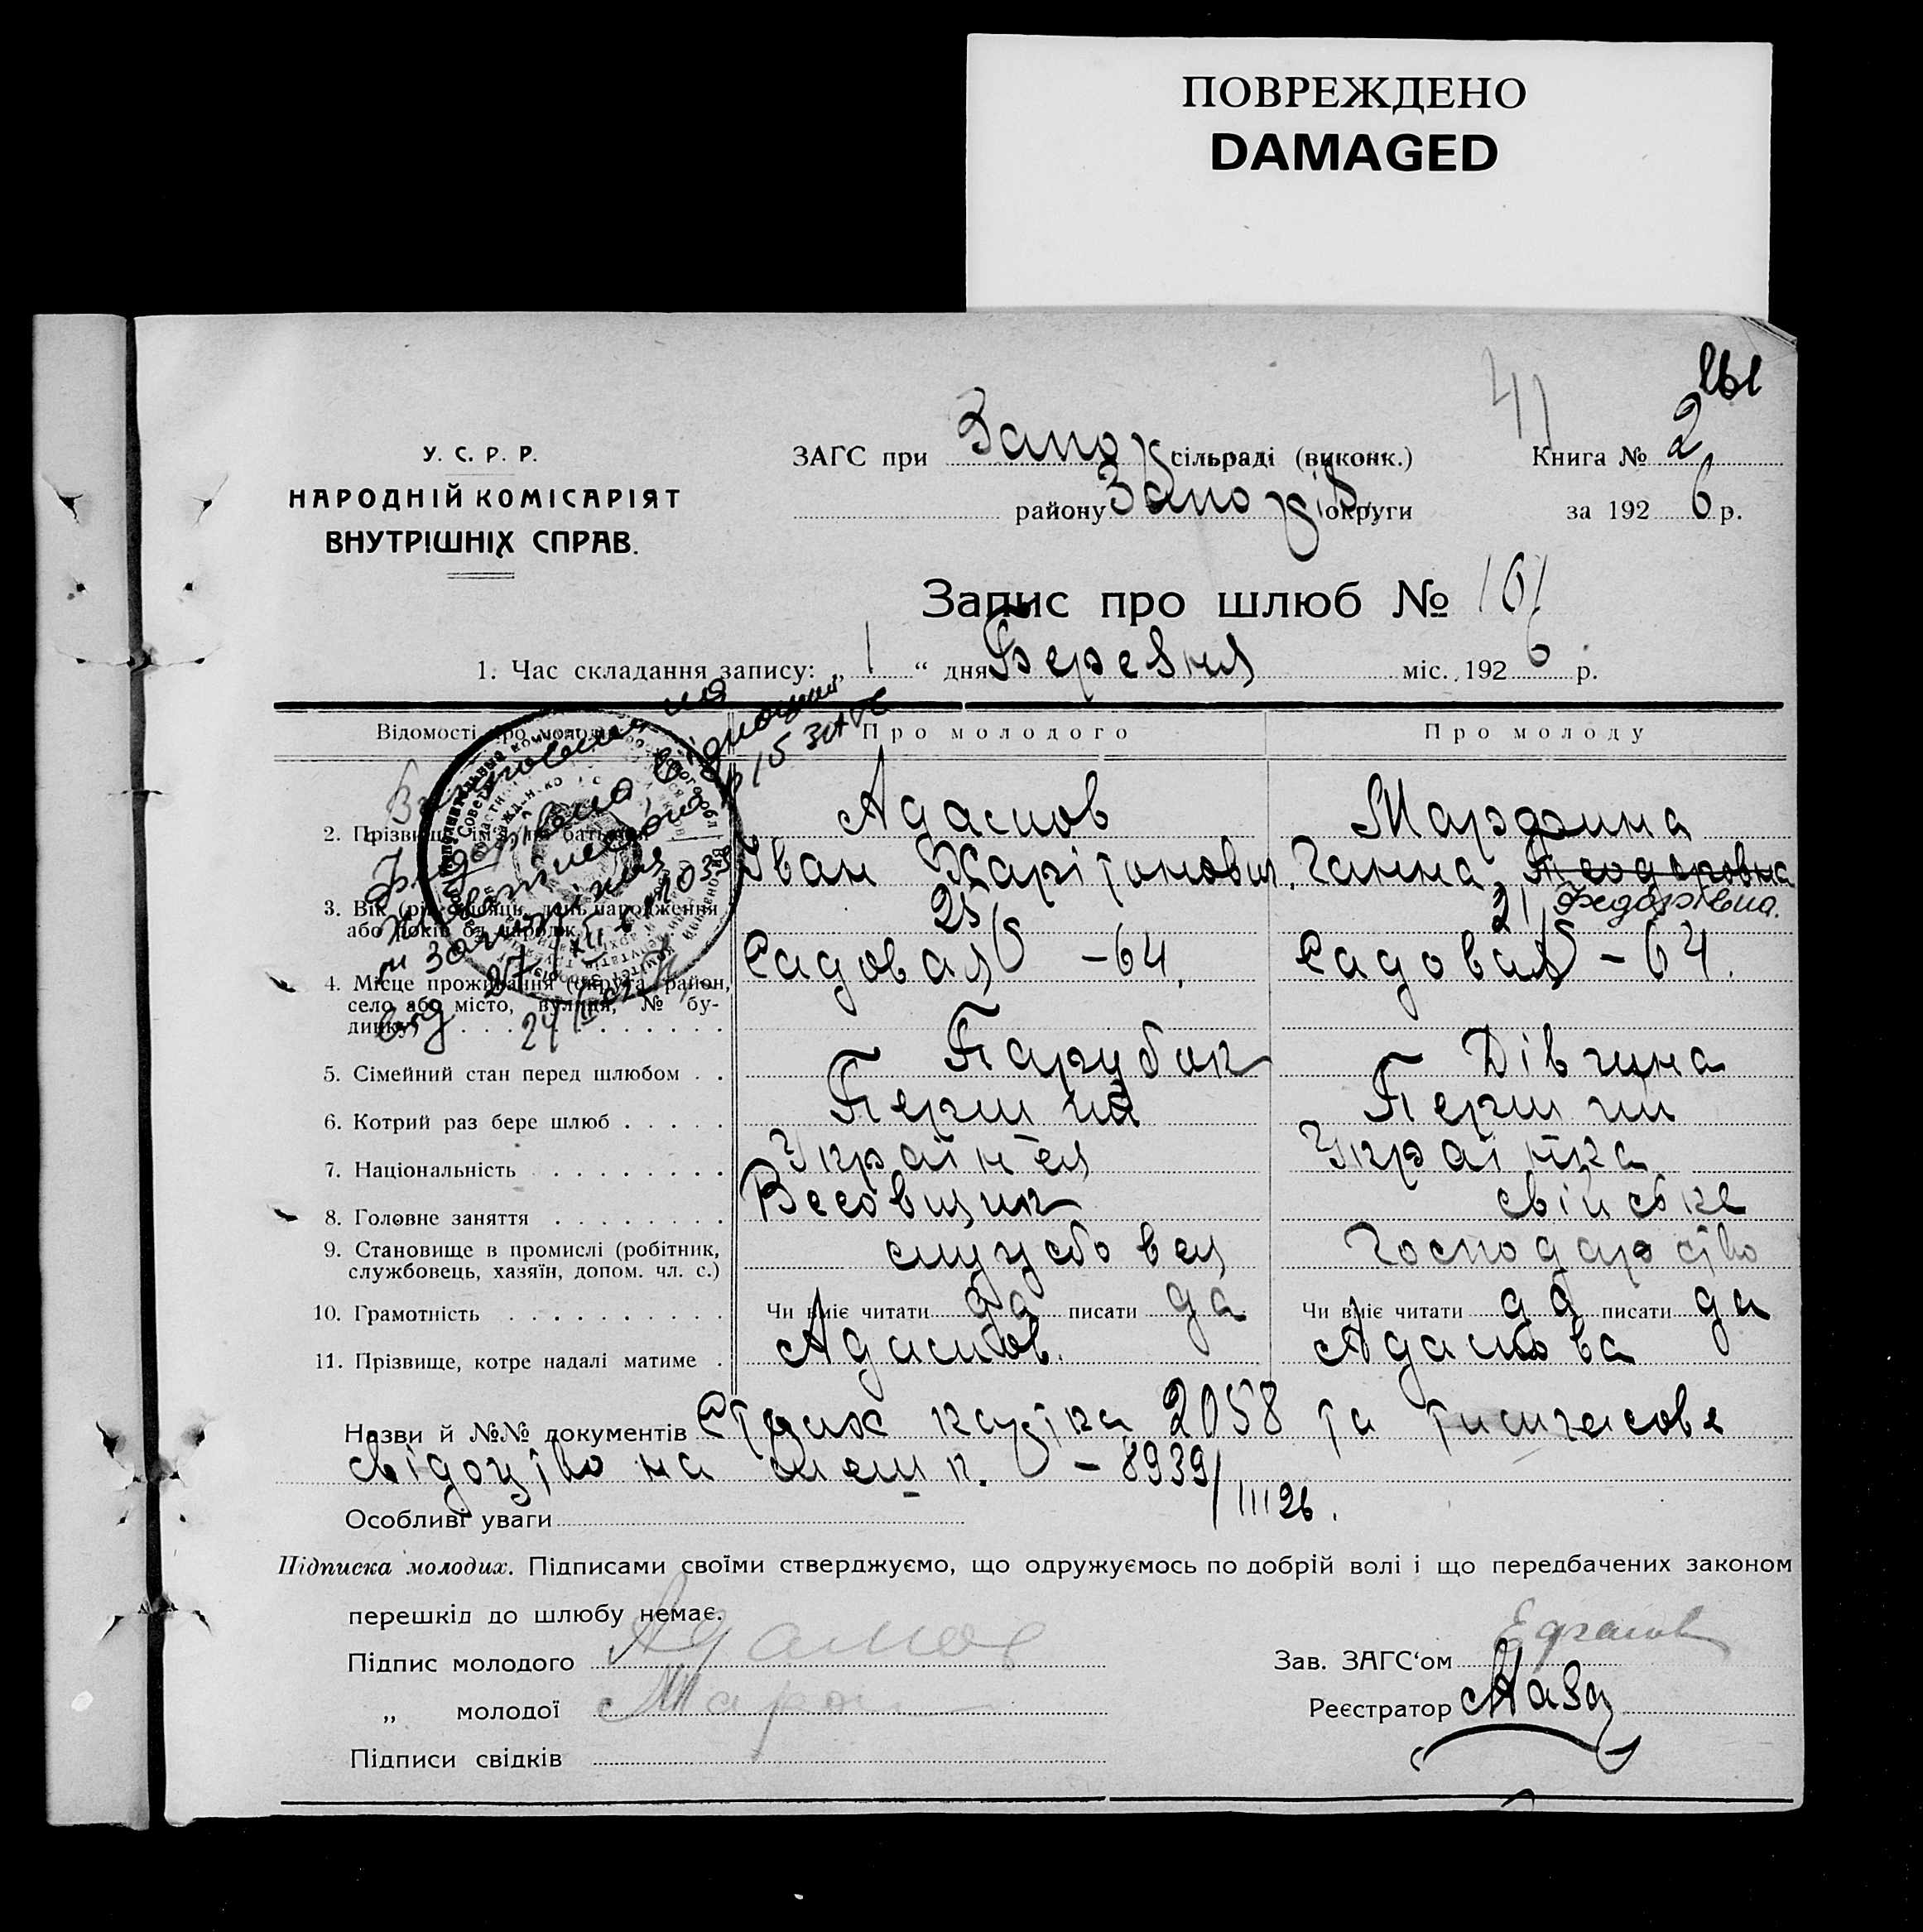 ПОВРЕЖДЕНО
DAMAGED
41
У. С. Р. Р.
НАРОДНІЙ КОМІСАРІЯТ
ВНУТРІШНІХ СПРАВ.
ЗАГС при Запор сільраді (виконк.)
Книга № 2
району Запоріз округи
за 192 6 р.
Запис про шлюб № 161
1. Час складання запису: „ 1 “ дня Березня міс. 192 6 р.
Відомості про молодих
Про молодого
Про молоду
2. Прізвище, ім'я, по батькові
Адамов
Іван Харітонович.
Мардоина
Ганна, Теодоровна
Федорівна.
3. Вік (рік, місяць, день народження або років од народж.)
25
21
4. Місце проживання (округа, район, село або місто, вулиця, № будинку)
Садовая - 64.
Садовая - 64.
5. Сімейний стан перед шлюбом
Парубок
Дівчина
6. Котрий раз бере шлюб
Перший
Перший
7. Національність
Українец
Українка
8. Головне заняття
Весовщик
свійське
9. Становище в промислі (робітник, службовець, хазяїн, допом. чл. с.)
службовец
господарство
10. Грамотність
Чи вміє читати да писати да
Чи вміє читати да писати да
11. Прізвище, котре надалі матиме
Адамов.
Адамова
Назви й №№ документів Страх картка 2058 та тимчасове
свідоцтво на мешк. - 8939/III 26.
Особливі уваги
Підписка молодих. Підписами своїми стверджуємо, що одружуємось по добрій волі і що передбачених законом
перешкід до шлюбу немає.
Підпис молодого Адамов
„ молодої
Підписи свідків
Зав. ЗАГС‘ом
Реєстратор